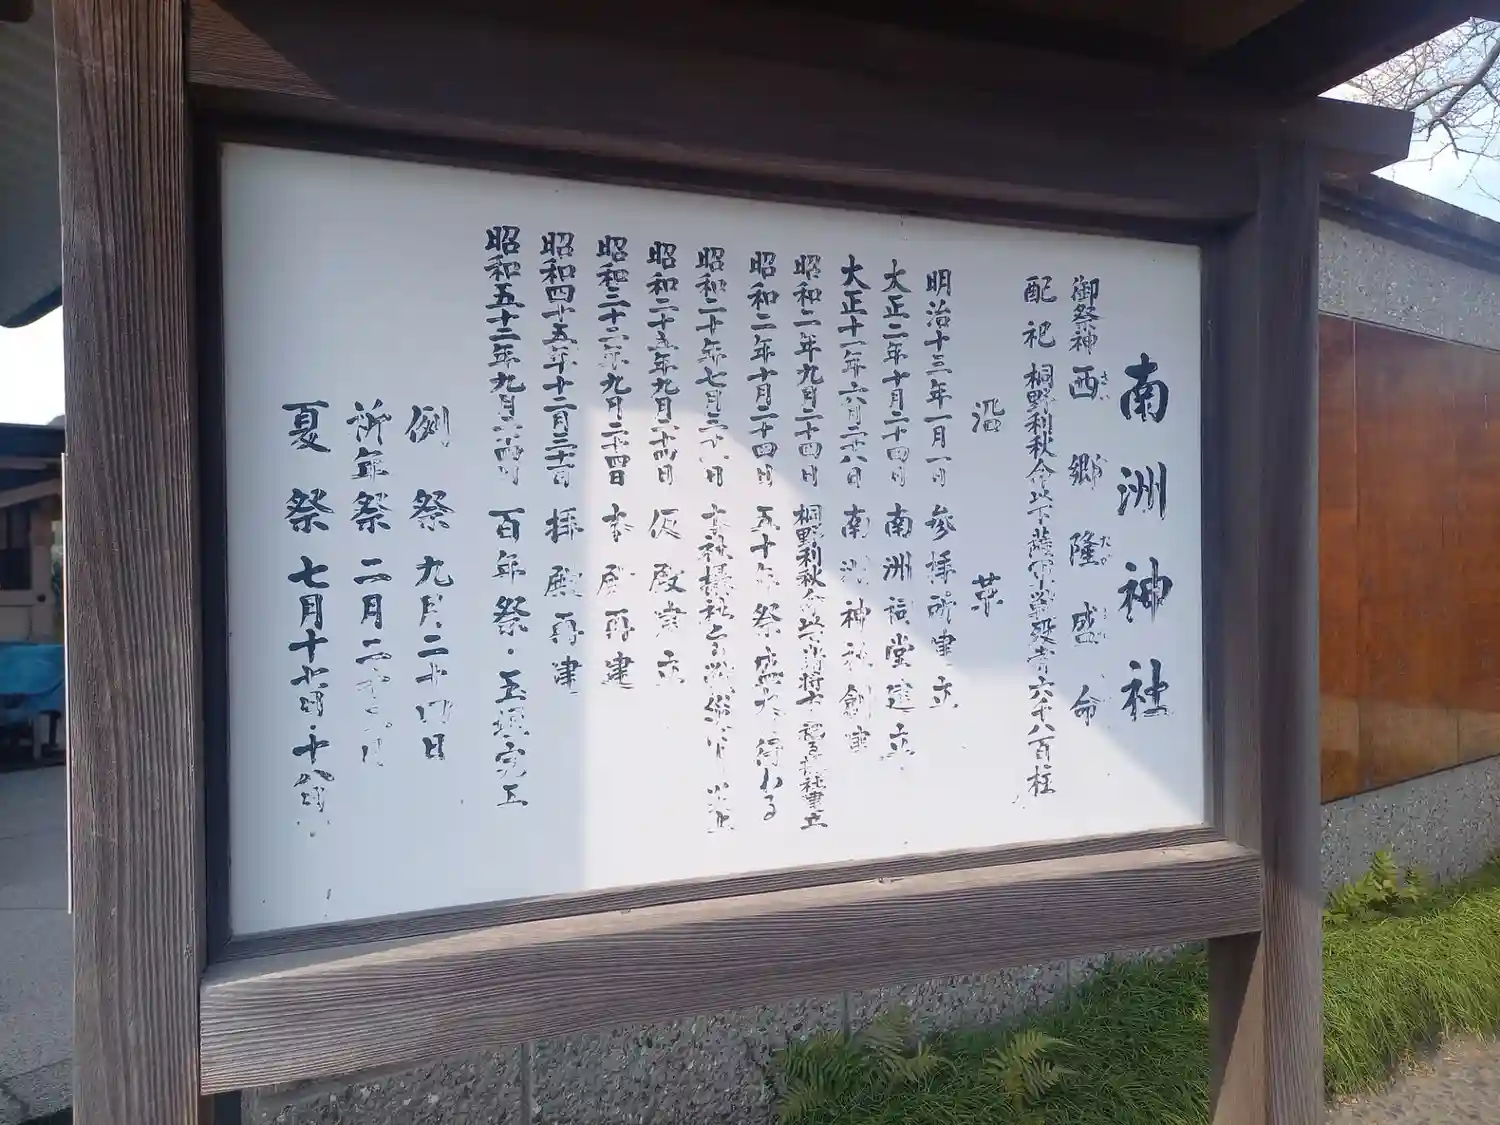 南洲神社
御祭神 西郷隆盛命
配祀 桐野利秋命以下薩軍戦歿者六千八百柱
沿革
明治十三年一月一日 参拝所建立
大正二年十月二十四日 南洲祠堂建立
大正十一年六月二十八日 南洲神社創建
昭和二年九月二十四日 桐野利秋命以下
昭和二年十月二十四日 五十年祭盛大 行わる
昭和二十年七月
昭和二十五年九月二十四日 仮殿建立
昭和三十二年九月二十四日 本殿再建
昭和四十五年十二月三十一日 拝殿再建
昭和五十二年九月二十四日 百年祭・玉垣完工
例祭 九月二十四日
祈年祭 二月
夏祭 七月十七日・十八日